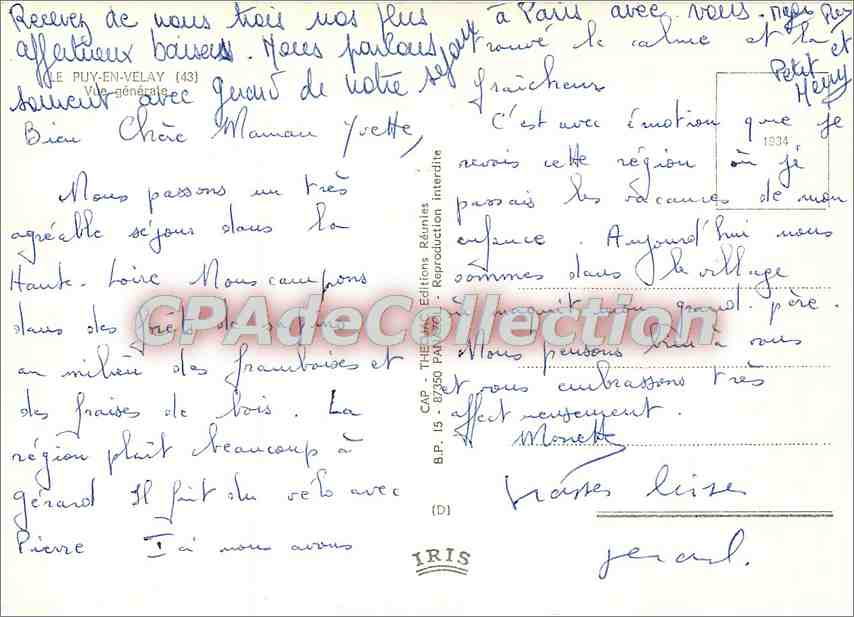 Recevez de nous trois nos plus
affectueux baisers. Nous parlons
souvent avec Gérard de notre séjour
à Paris avec vous.
Petit
Henry
LE PUY-EN-VELAY (43)
Vue générale
Bien Chère Maman Yvette,
Nous passons un très
agréable séjour dans la
Haute-Loire Nous campons
dans des forêts de sapins
au milieu des framboises et
des fraises de bois. La
région plaît beaucoup à
Gérard Il fait du vélo avec
Pierre Ici nous avons
trouvé le calme et la
fraîcheur
C'est avec émotion que je
revois cette région où je
passais les vacances de mon
enfance. Aujourd'hui nous
sommes dans le village
où naquit mon grand-père.
Nous pensons bien à vous
et vous embrassons très
affectueusement.
Monette
gérard.
CAP - Editions Réunies
B.P. 15 - 87350 Reproduction interdite
1934
(D)
IRIS
CPAdeCollection